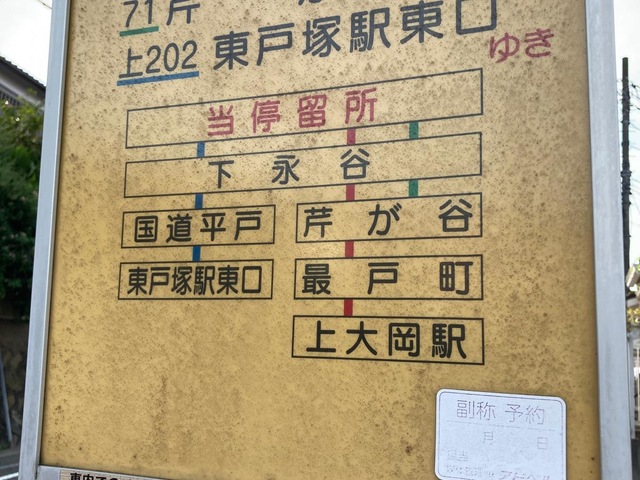 71 芹
上202 東戸塚駅東口ゆき
当停留所
下永谷
国道平戸 芹が谷
東戸塚駅東口 最戸町
上大岡駅
副称 予約
月 日